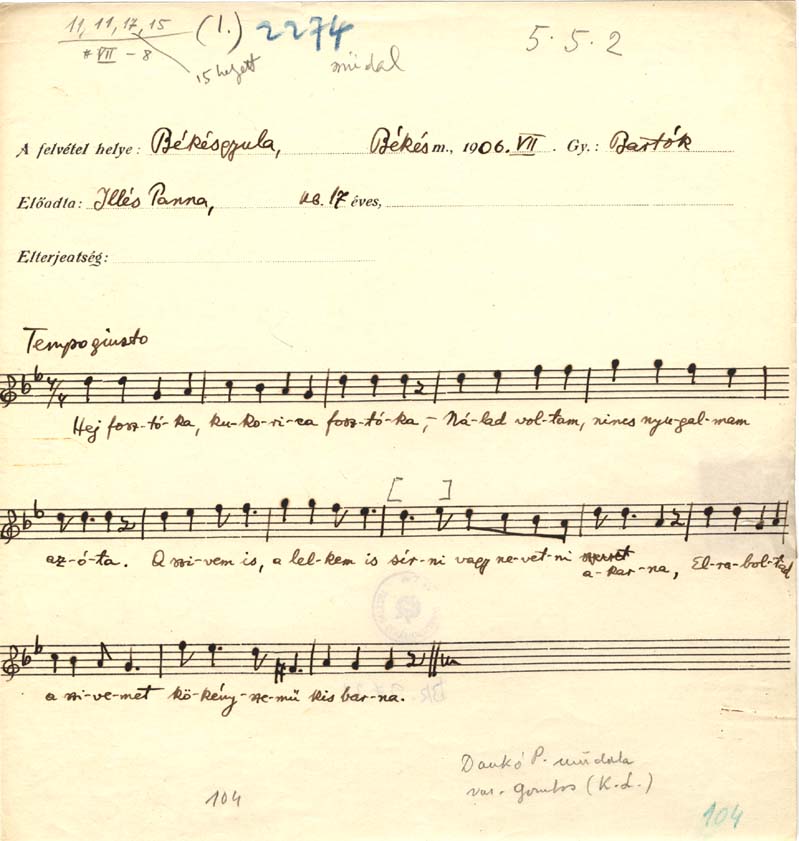 11, 11, 17, 15 (1.) 2274 5.5.2
# VII - 8
15 helyett műdal
A felvétel helye: Békésgyula, Békés m., 1906. VII. Gy.: Bartók
Előadta: Illés Panna, kb. 17 éves,
Elterjedtség:
Tempo giusto
4/4
Hej fosz-tó-ka, ku-ko-ri-ca fosz-tó-ka, – Ná-lad vol-tam, nincs nyu-gal-mam
[ ]
az-ó-ta. A szi-vem is, a lel-kem is sír-ni vagy ne-vet-ni szeret
a-kar-na, El-ra-bol-tad
a szi-ve-met kö-kény-sze-mű kis bar-na.
Dankó P. műdala
var. Gombos (K.L.)
104
104